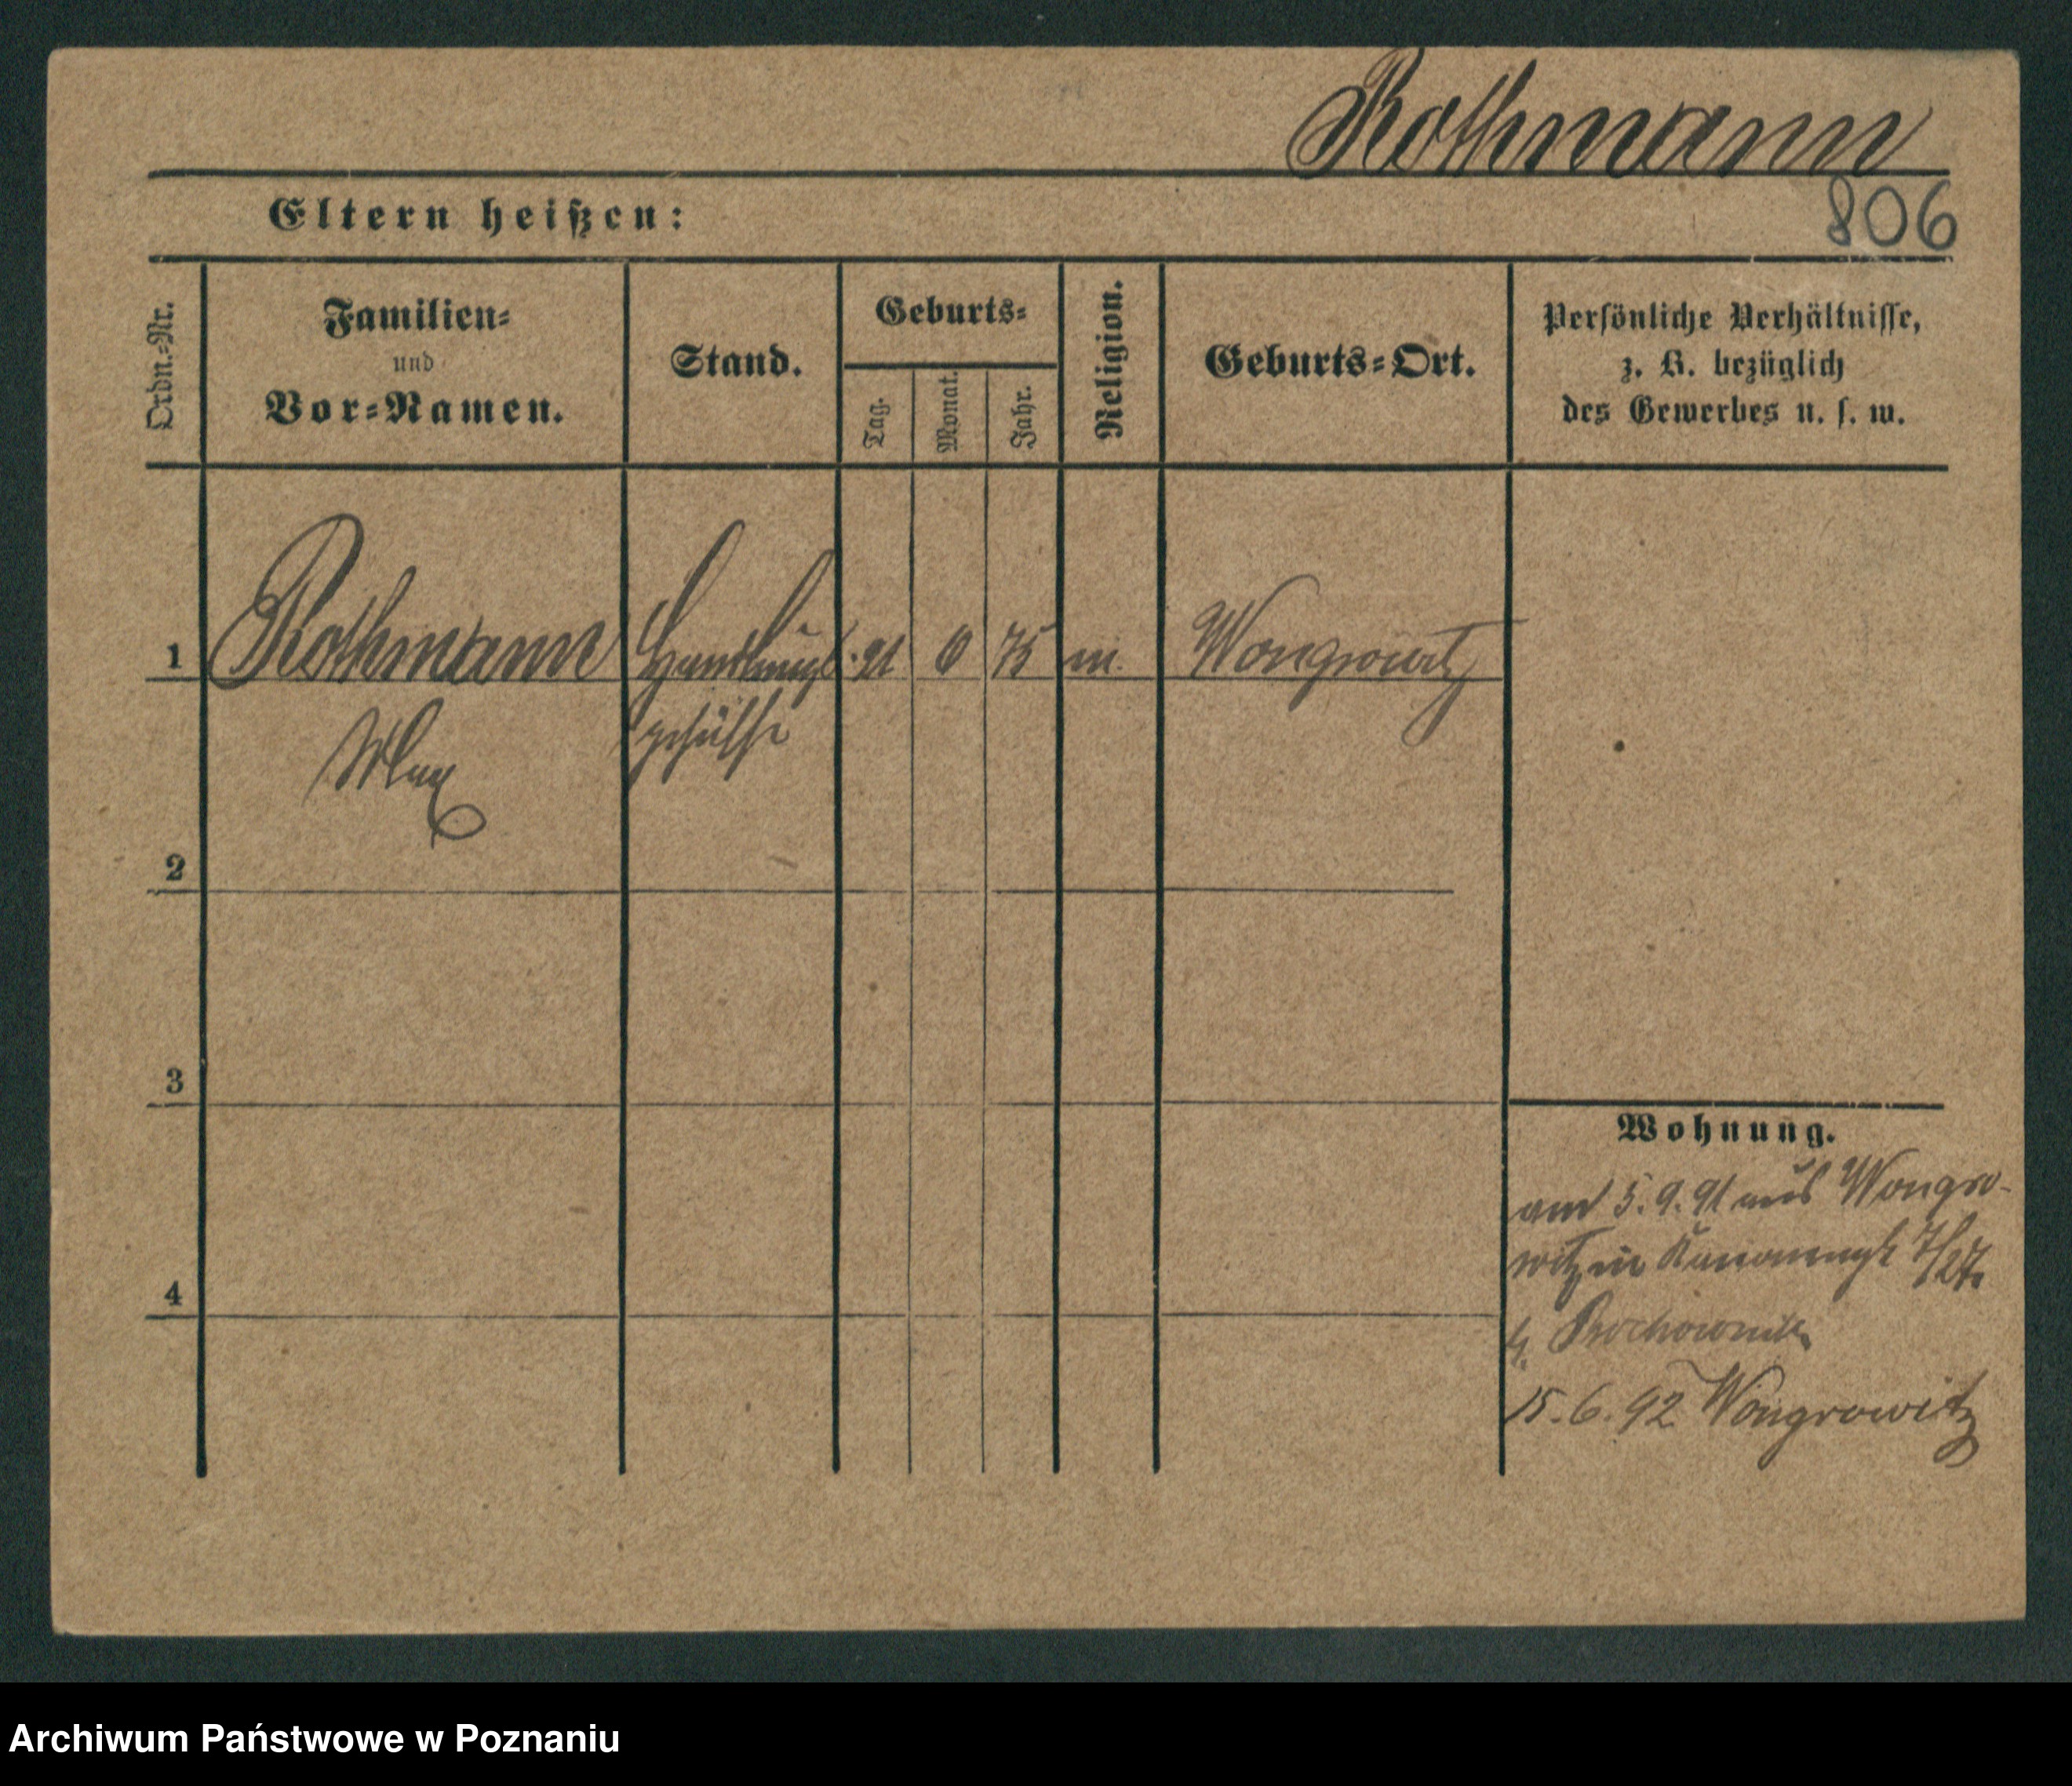 Rothmann
806
Eltern heißen:
Ordn.-Nr.
Familien-
und
Vor-Namen.
Stand.
Geburts-
Tag.
Monat.
Jahr.
Religion.
Geburts-Ort.
Persönliche Verhältnisse,
z. B. bezüglich
des Gewerbes u. s. w.
1 Rothmann Handlungs 6 75 m. Wongrowitz
Max gehülfe
2
3
Wohnung.
5. 9. 91 aus Wongro-
witz
4
15. 6. 92 Wongrowitz
Archiwum Państwowe w Poznaniu